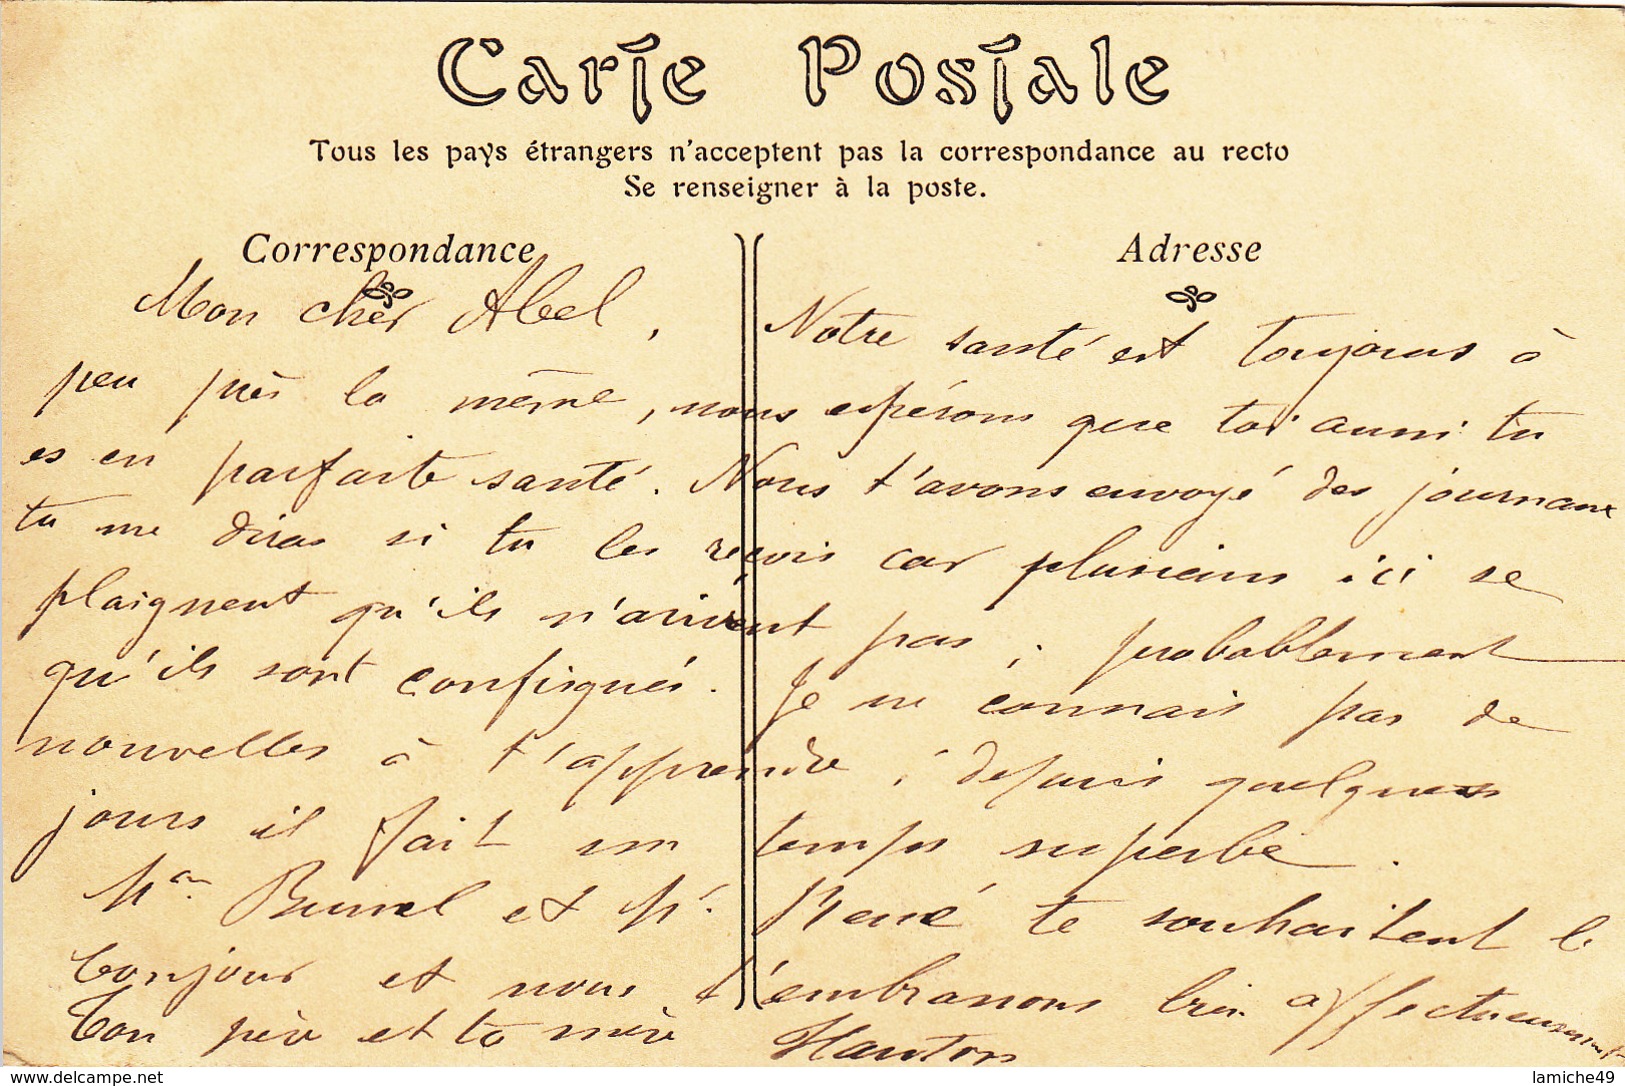 Carte Postale
Tous les pays étrangers n'acceptent pas la correspondance au recto
Se renseigner à la poste.
Correspondance
Adresse
Mon cher Abel, Notre santé est toujours à
peu près la même, nous espérons que toi aussi tu
es en parfaite santé. Nous t'avons envoyé des journaux
tu me diras si tu les reçois car plusieurs ici se
plaignent qu'ils n'arrivent pas, probablement
qu'ils sont confisqués. Je ne connais pas de
nouvelles à t'apprendre, depuis quelques
jours il fait un temps superbe.
Mme et Mr. René te souhaitent le
bonjour et nous t'embrassons bien affectueusement
Ton père et ta mère
delcampe.net
lamiche49